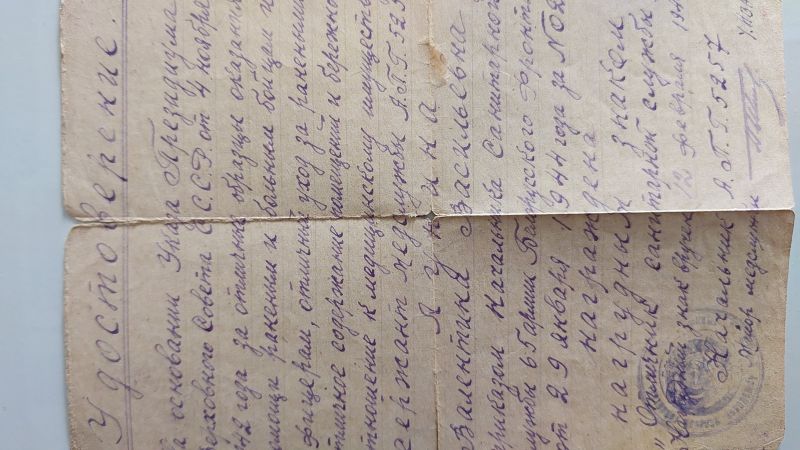 Удостоверение.
а основании Указа Президиума
ерховного Совета С.С.С.Р. от 4 ноября
42 года за отличные образцы оказания
омощи раненым и больным бойцам и
фицерам, отличный уход за ранеными
тличное содержание помещений и бережно
тношение к медицинскому имуществ
сержант медслужбы А.П.Г. 525
Валентина Васильевна
приказом Начальника Санитарной
службы армии Белорусского Фронта
от 29 января 1944 года за №02
награждена
нагрудным знаком
„Отличник санитарной службы
Нагрудный знак вручен 12 февраля 194
Начальник А.П.Г. 5257
майор медслужбы